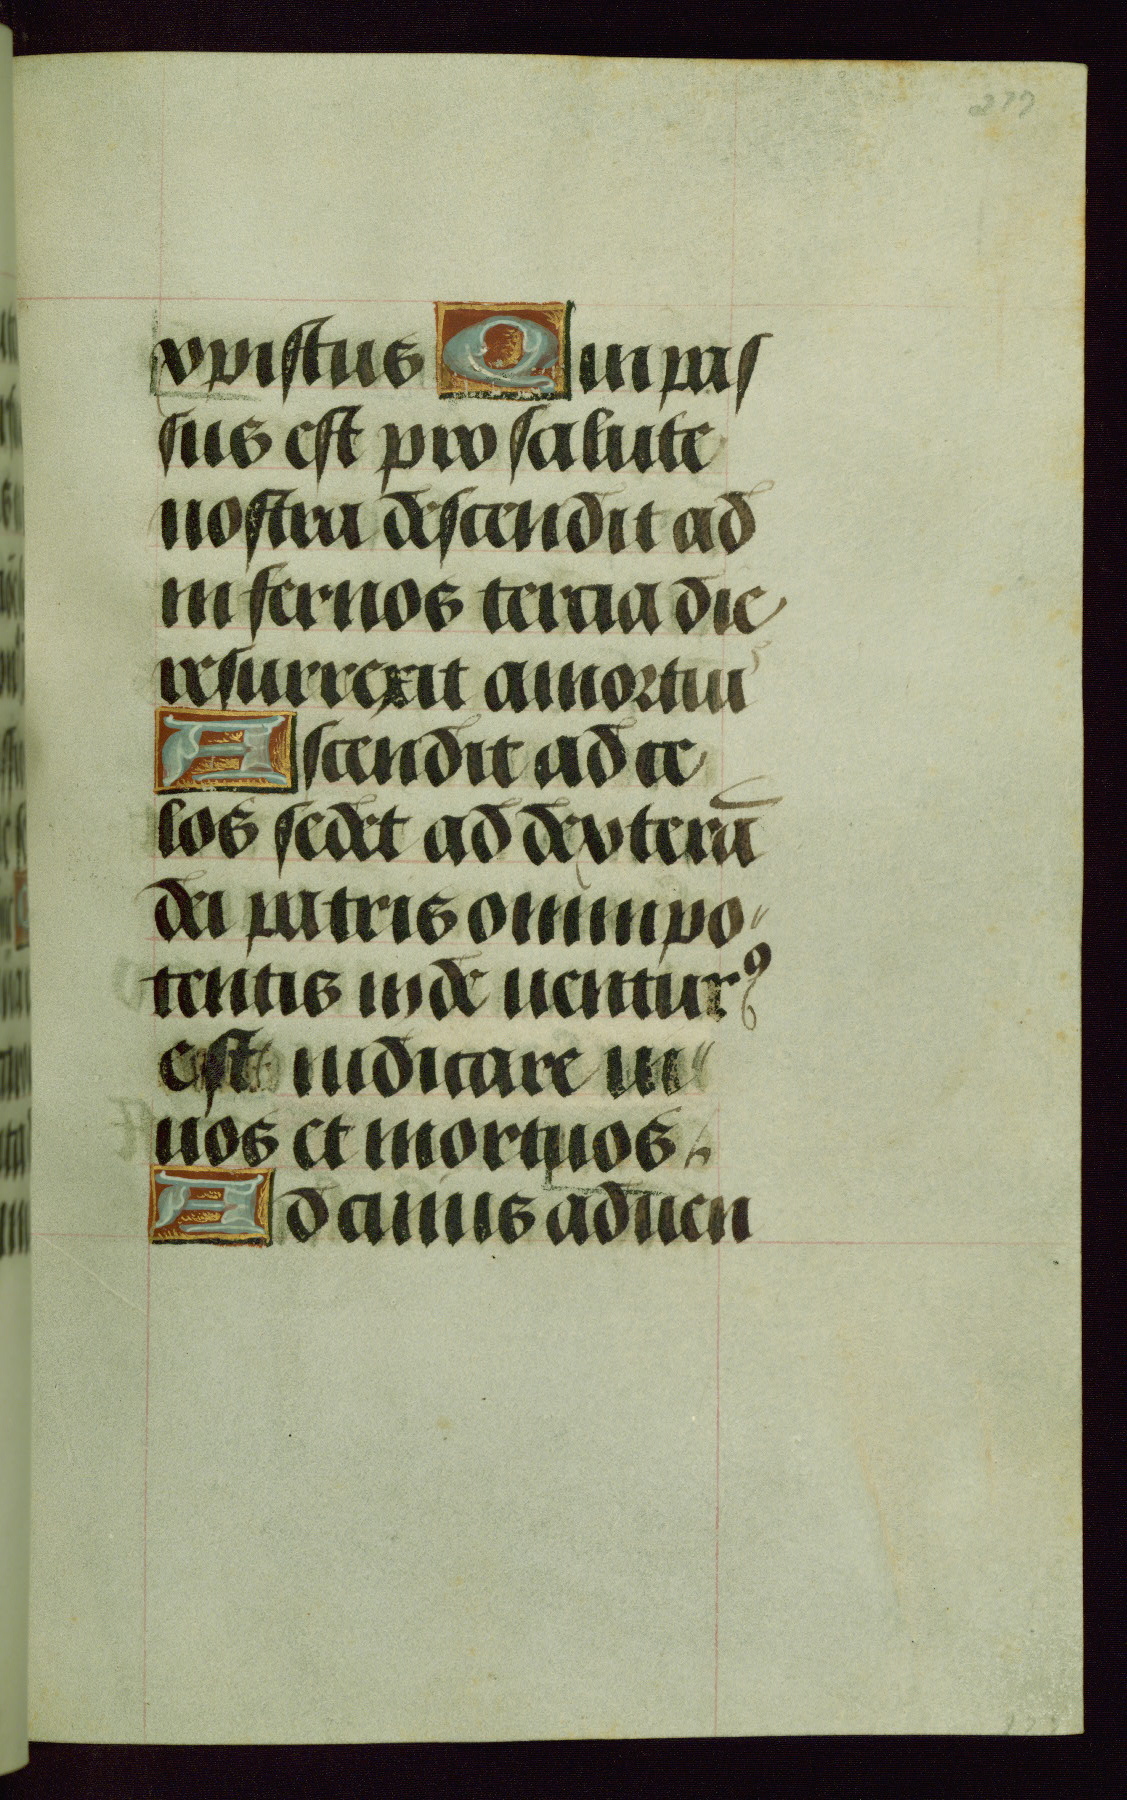 277
xpistus Qui pas
sus est pro salute
nostra descendit ad
infernos tercia die
resurrexit a mortuis
Ascendit ad ce
los sedet ad dexterā
dei patris omnipo"
tentis inde uentur⁹
est iudicare ui"
uos et mortuos
Ad cuius aduen